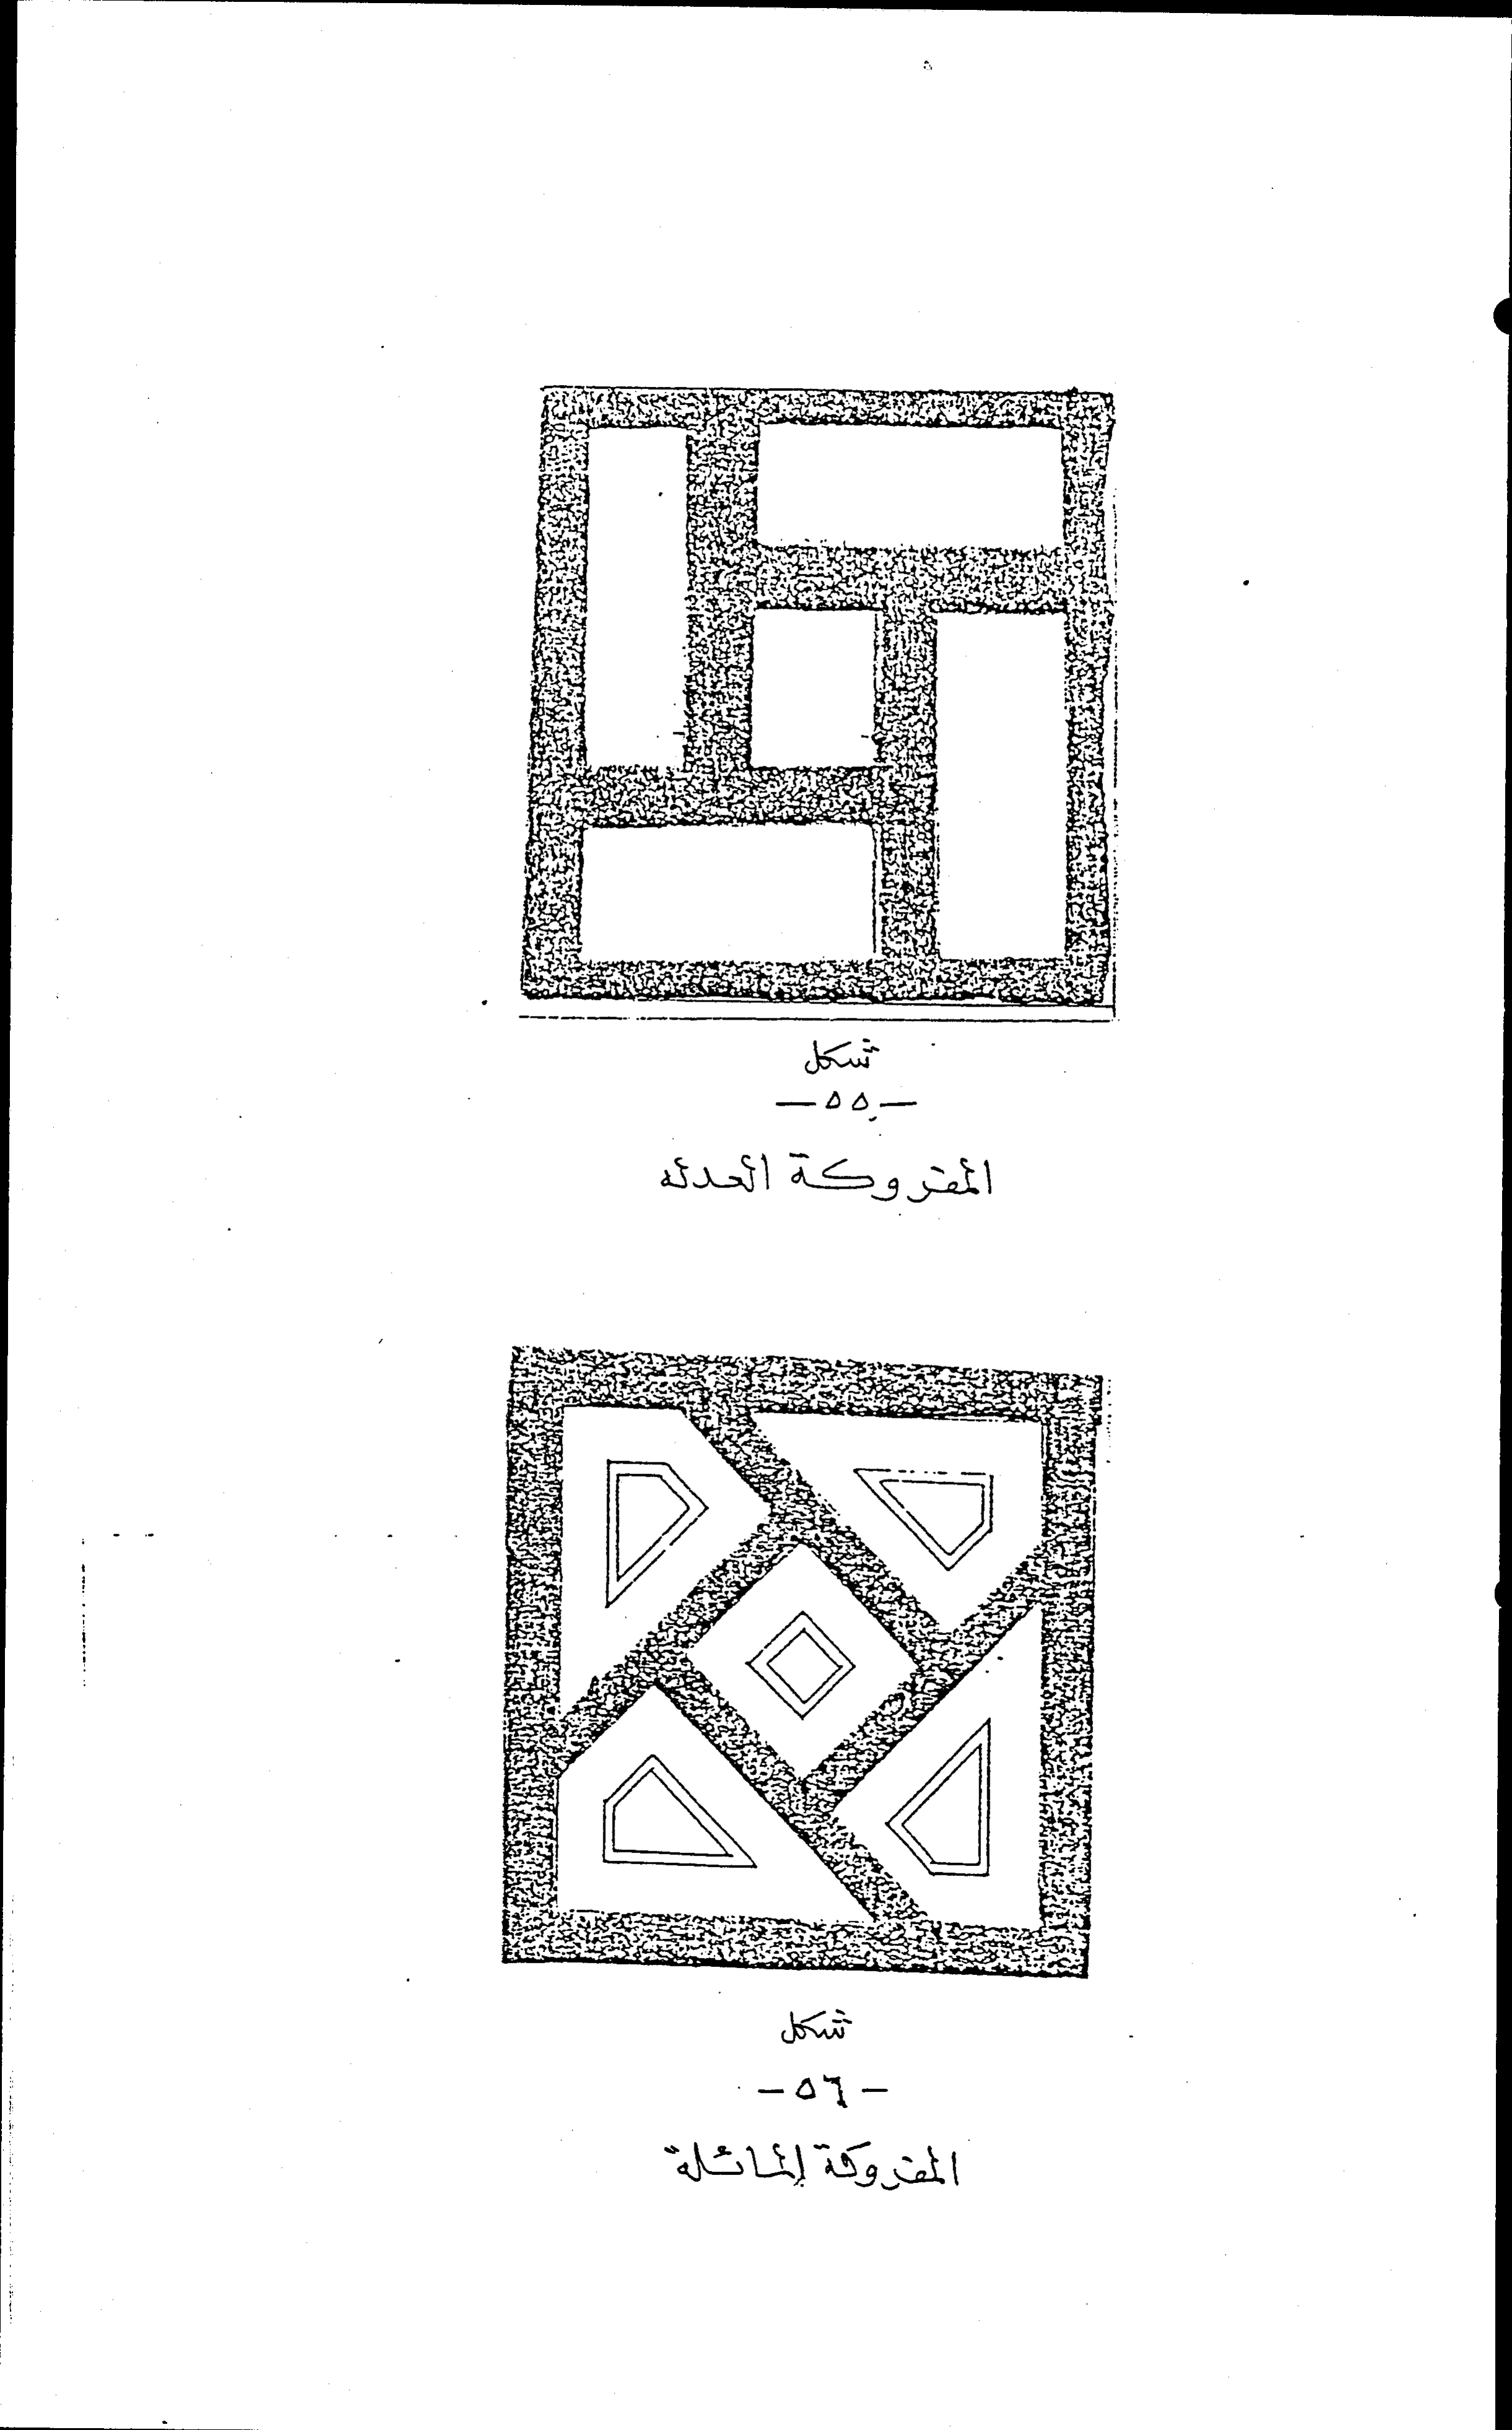 شكل
- ٥٥ -
المفروكة العدله
شكل
- ٥٦ -
المفروكة المائلة